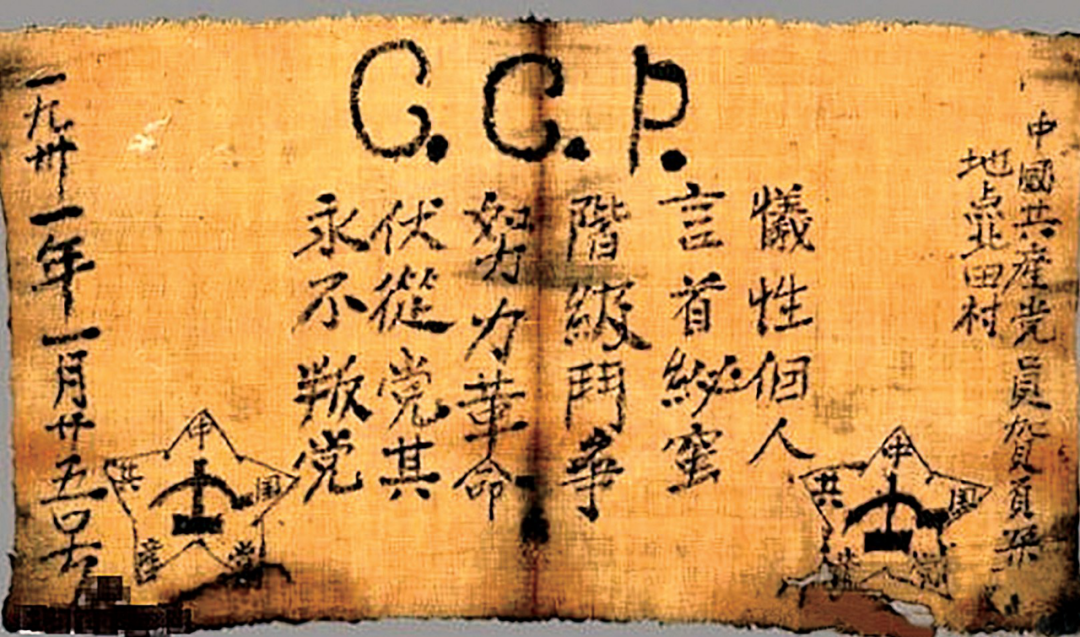 C.C.P.
中國共産党員賀頁
地点北田村
犧性個人
言首秘蜜
階級鬥爭
努力革命
伏從党其
永不叛党
一九卅一年一月廿五号
中国共
中国共産党